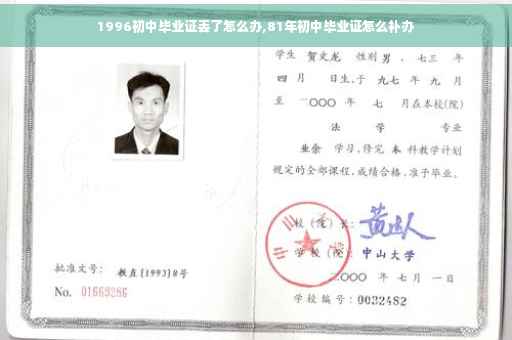 1996初中毕业证丢了怎么办,81年初中毕业证怎么补办
学生 贺文龙 性别 男 、七三 年
四 月 日生,于 九七 年 九 月
至 二〇〇〇 年 七 月在本校(院)
法 学 专业
业余 学习,修完 本 科教学计划
规定的全部课程,成绩合格,准予毕业。
校(院)长:
学校(院): 中山大学
二〇〇〇 年 七 月 一 日
学校编号: 0032482
批准文号: 教直[1993]8号
No. 01663286